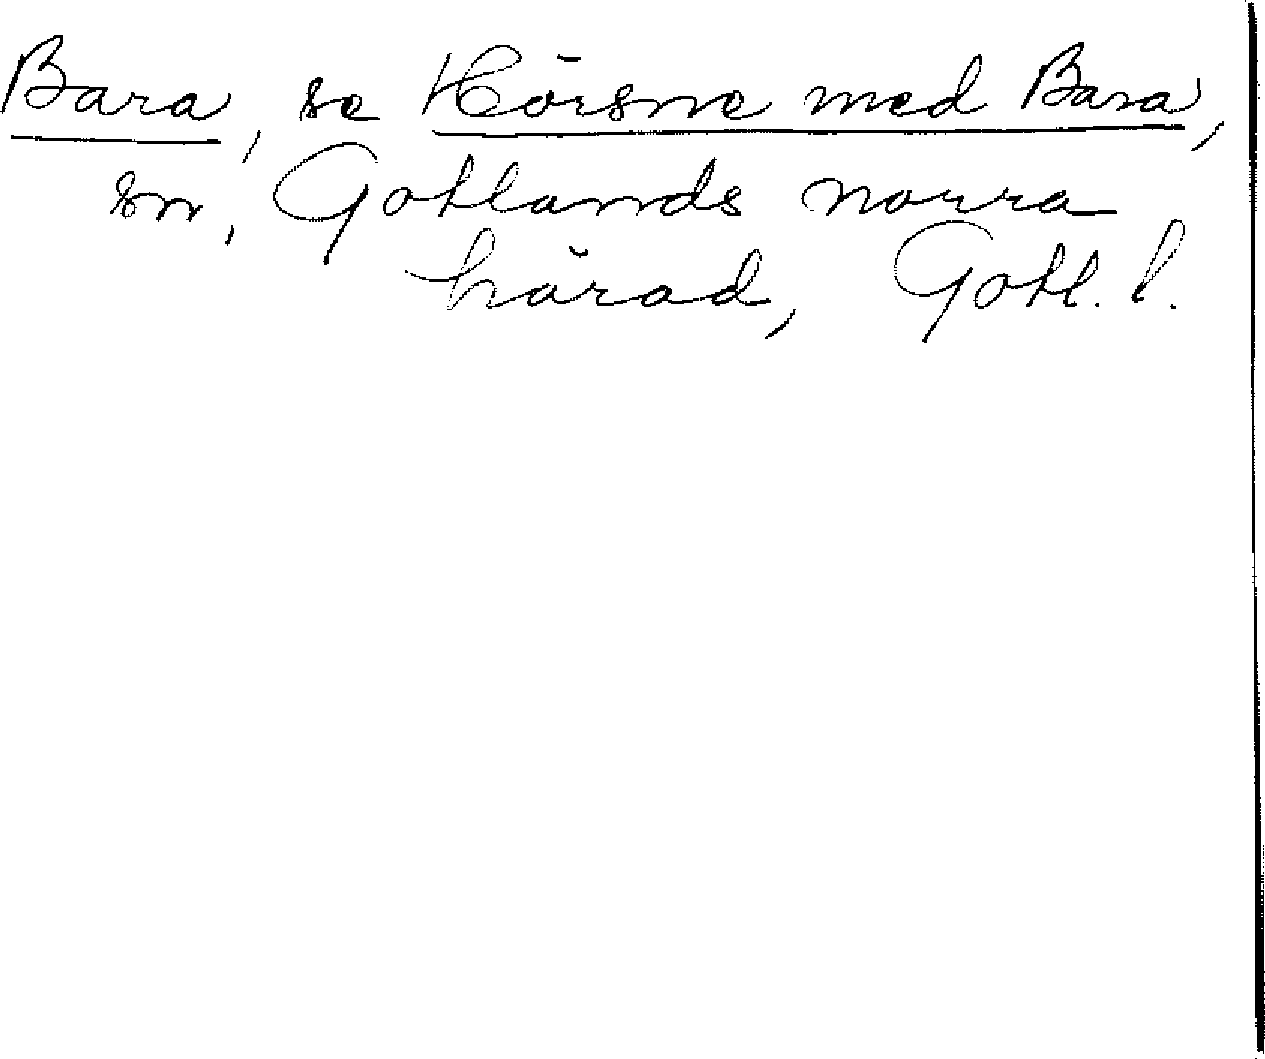 Bara, se Hörsne med Bara,
sn, Gotlands norra
härad, Gotl. l.